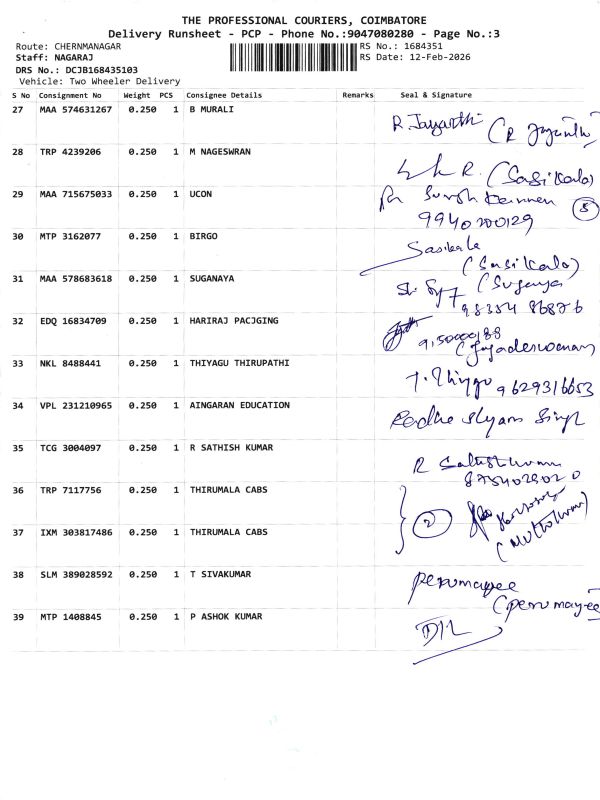 THE PROFESSIONAL COURIERS, COIMBATORE
Delivery Runsheet - PCP - Phone No.:9047080280 - Page No.:3
Route: CHERNMANAGAR RS No.: 1684351
Staff: NAGARAJ RS Date: 12-Feb-2026
DRS No.: DCJB168435103
Vehicle: Two Wheeler Delivery
S No Consignment No Weight PCS Consignee Details Remarks Seal & Signature
27 MAA 574631267 0.250 1 B MURALI
R. Jayanthi (R Jayanthi)
28 TRP 4239206 0.250 1 M NAGESWRAN
(Sasikala)
29 MAA 715675033 0.250 1 UCON
9940200129
30 MTP 3162077 0.250 1 BIRGO
Sasikala
(Sasikala)
31 MAA 578683618 0.250 1 SUGANAYA
(Suganya)
98354 86876
32 EDQ 16834709 0.250 1 HARIRAJ PACJGING
33 NKL 8488441 0.250 1 THIYAGU THIRUPATHI
T. Thiyagu 9629316653
34 VPL 231210965 0.250 1 AINGARAN EDUCATION
Radhe Shyam Singh
35 TCG 3004097 0.250 1 R SATHISH KUMAR
R Sathish Kumar
36 TRP 7117756 0.250 1 THIRUMALA CABS
2
37 IXM 303817486 0.250 1 THIRUMALA CABS
38 SLM 389028592 0.250 1 T SIVAKUMAR
perumayee
(perumayee
39 MTP 1408845 0.250 1 P ASHOK KUMAR